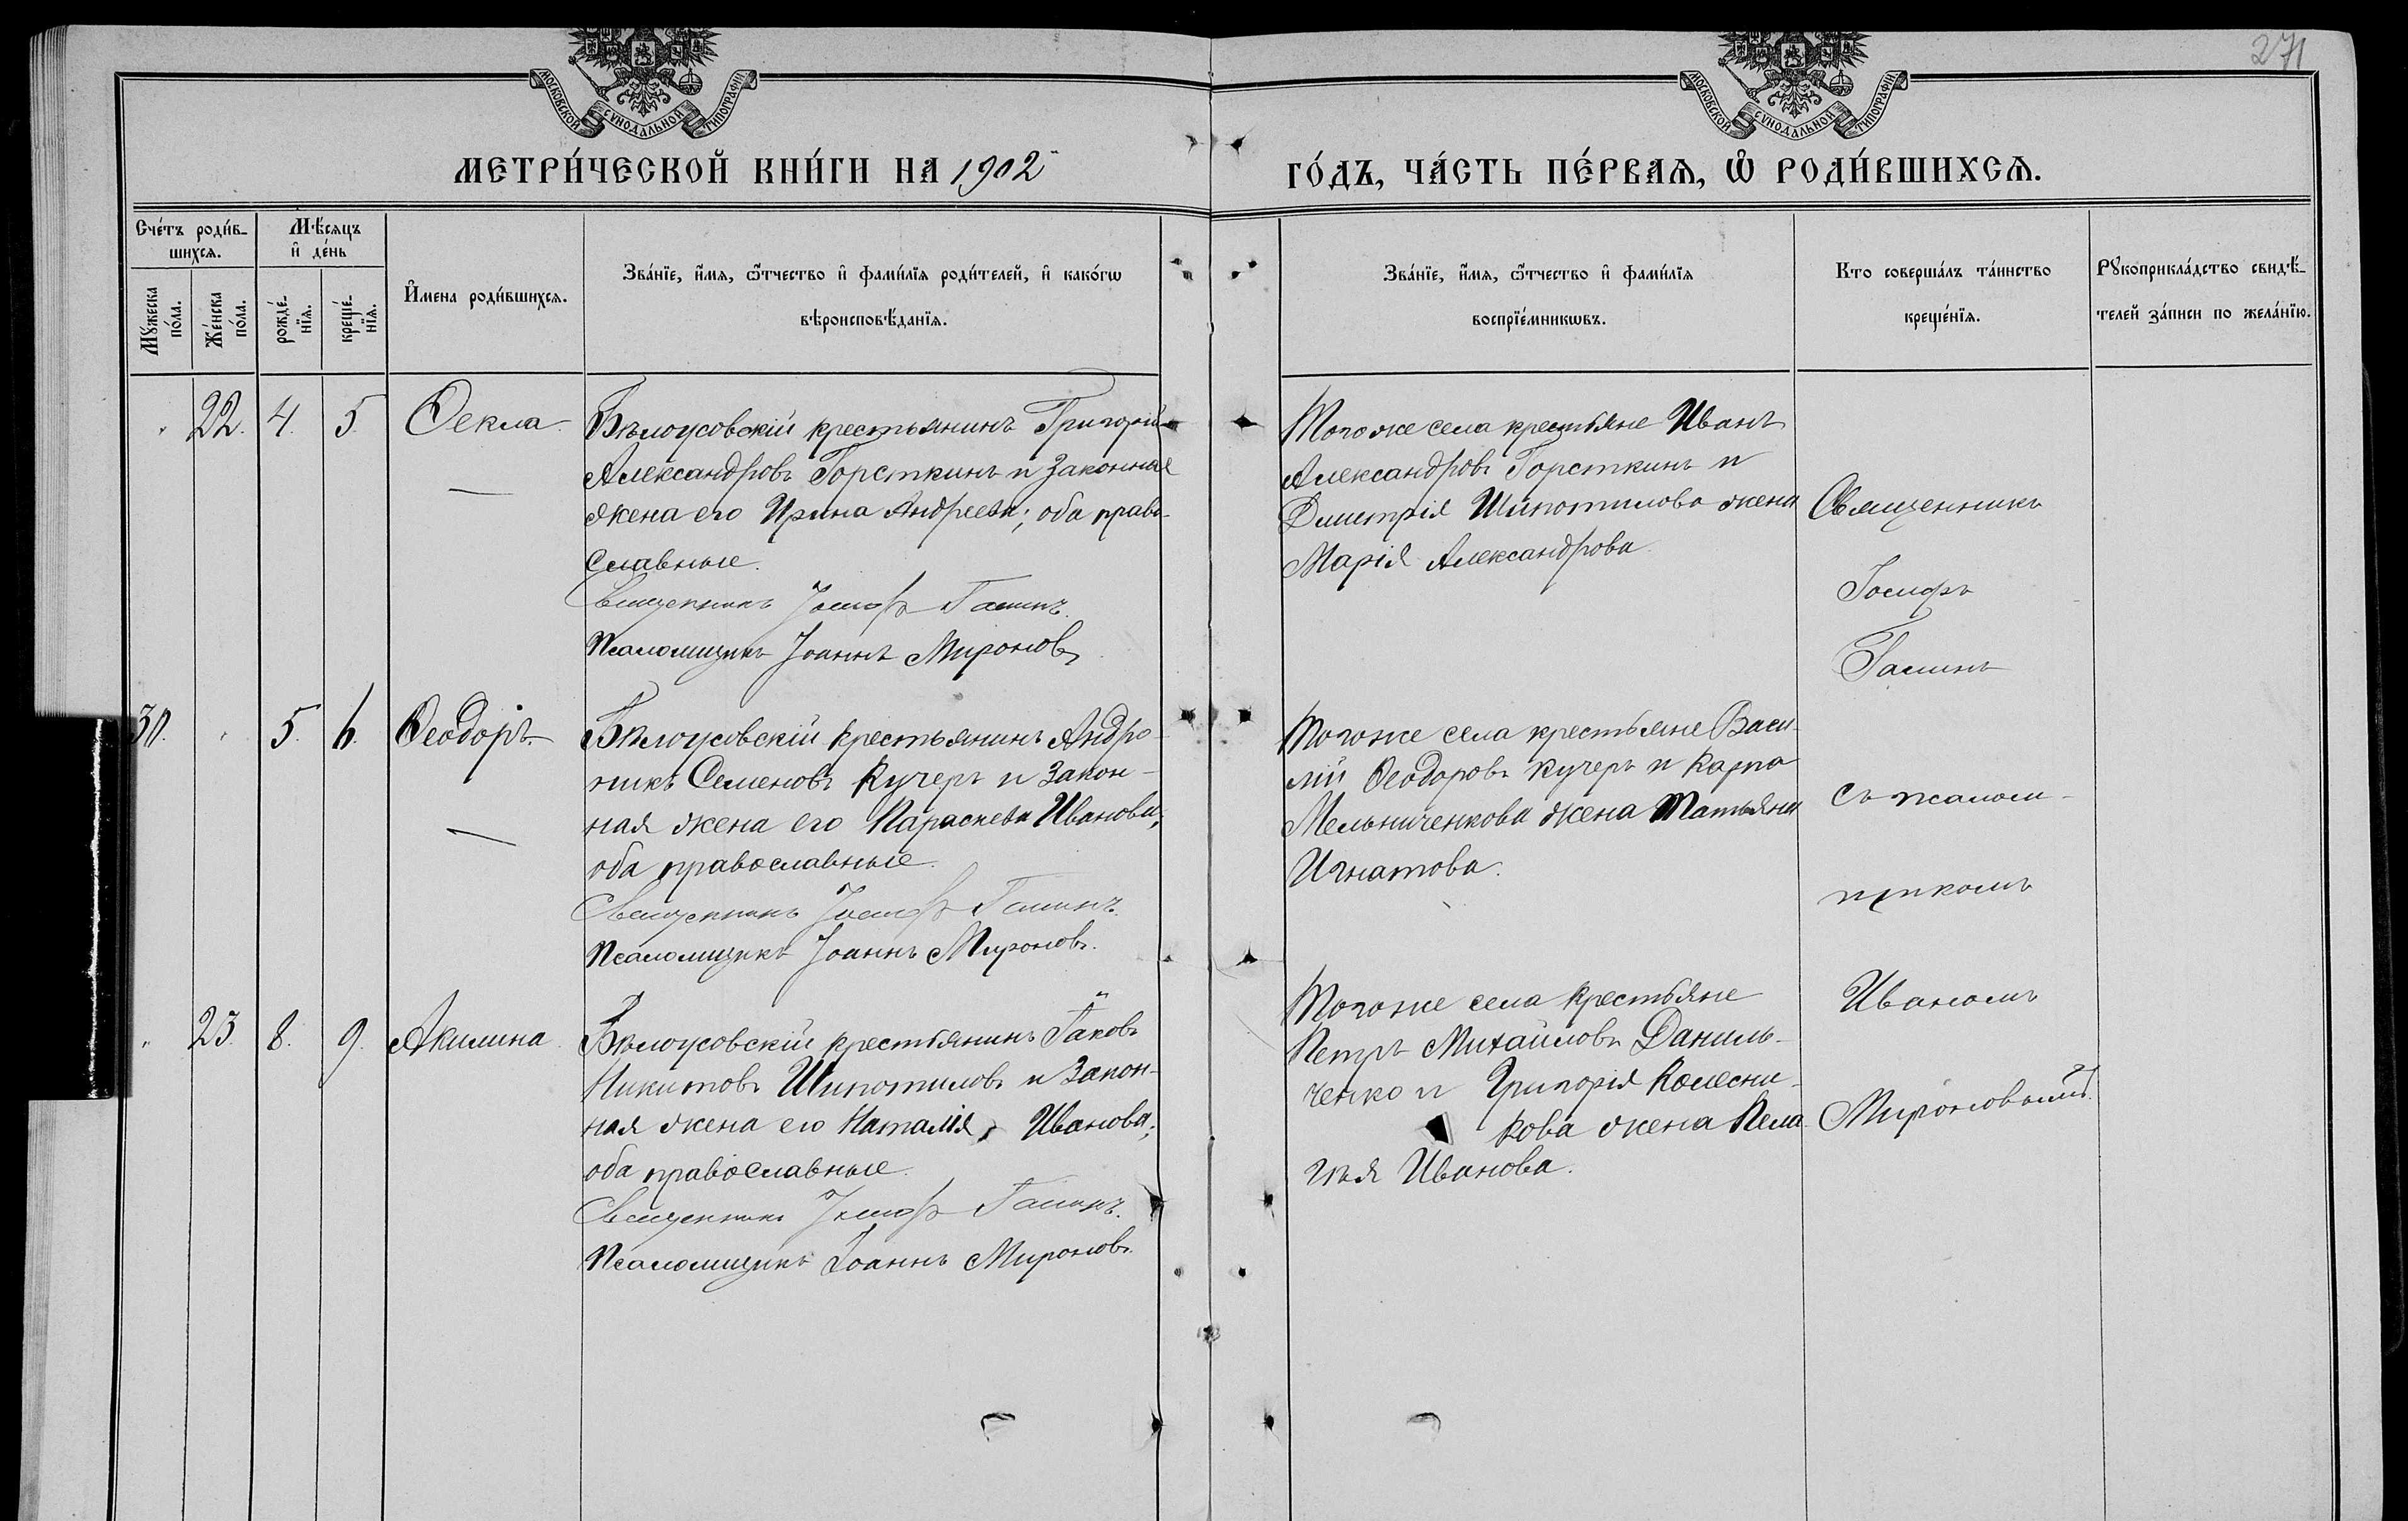 271
МОСКОВСКОЙ СѴНОДАЛЬНОЙ ТИПОГРАФІИ
МОСКОВСКОЙ СѴНОДАЛЬНОЙ ТИПОГРАФІИ
МЕТРИ́ЧЕСКОЙ КНИ́ГИ НА 1902
ГО́ДЪ, ЧА́СТЬ ПЕ́РВАѦ, Ѽ РОДИ́ВШИХСѦ.
Сче́тъ роди́в-
шихсѧ.
Мѣ́сѧцъ
и҆ де́нь
Мꙋ́жеска
по́ла.
Же́нска
по́ла.
рожде́-
нїѧ.
креще́-
нїѧ.
И҆мена роди́вшихсѧ.
Зва́нїе, и҆́мѧ, ѻ҆́тчество и҆ фами́лїѧ роди́телей, и҆ како́гѡ
вѣроисповѣ́данїѧ.
Зва́нїе, и҆́мѧ, ѻ҆́тчество и҆ фами́лїѧ
воспрїе́мникѡвъ.
Кто соверша́лъ та́инство
креще́нїѧ.
Рꙋкоприкла́дство свидѣ́-
телей за́писи по жела́нїю.
22. 4. 5. Ѳекла.
Бѣлоусовскій крестьянинъ Григорій
Александровъ Горсткинъ и законная
жена его Ирина Андреева; оба право-
славные.
Священникъ Іосифъ Галинъ.
Псаломщикъ Іоаннъ Мироновъ
Тогоже села крестьяне Иванъ
Александровъ Горсткинъ и
Димитрія Шипотилова жена
Марія Александрова
30. 5. 6. Ѳеодоръ.
Бѣлоусовскій крестьянинъ Андро-
никъ Семеновъ Кучеръ и закон-
ная жена его Параскева Иванова;
оба православные.
Священникъ Іосифъ Галинъ.
Псаломщикъ Іоаннъ Мироновъ.
Тогоже села крестьяне Васи-
лій Ѳеодоровъ Кучеръ и Карпа
Мельниченкова жена Татьяна
Игнатова.
23. 8. 9. Акилина
Бѣлоусовскій крестьянинъ Іаковъ
Никитовъ Шипотиловъ и закон-
ная жена его Наталія Иванова;
оба православные.
Священникъ Іосифъ Галинъ.
Псаломщикъ Іоаннъ Мироновъ.
Тогоже села крестьяне
Петръ Михайловъ Даниль-
ченко и Григорія Колесни-
кова жена Пела-
гія Иванова.
Священникъ
Іосифъ
Галинъ
съ псалом-
щикомъ
Иваномъ
Мироновымъ.